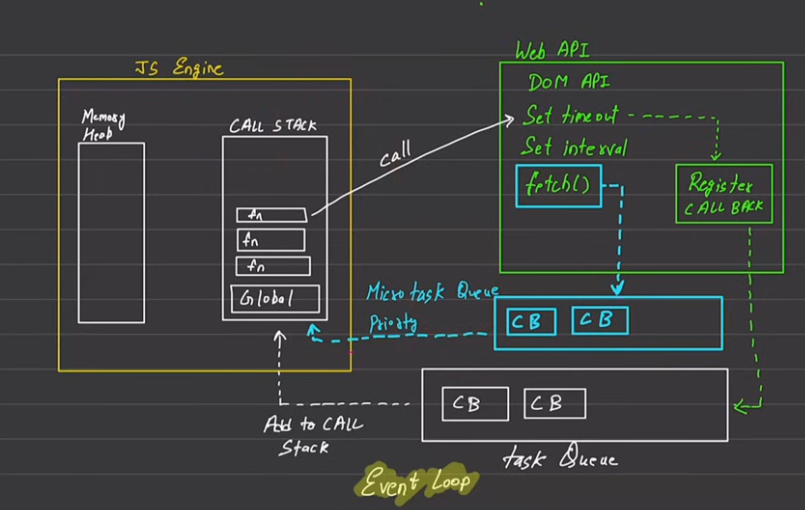 JS Engine
Memory
Heap
CALL STACK
fn
fn
fn
Global
call
Web API
DOM API
Set timeout
Set interval
fetch()
Register
CALL BACK
Microtask Queue
Priority
CB
CB
CB
CB
Add to CALL
Stack
task Queue
Event Loop